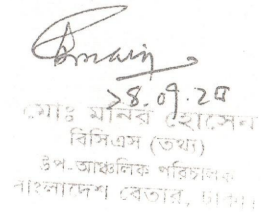 ২৪.০৭.২০
মোঃ মনির হোসেন
বিসিএস (তথ্য)
উপ-আঞ্চলিক পরিচালক
বাংলাদেশ বেতার, ঢাকা।